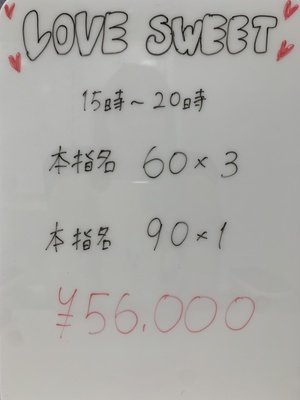 LOVE SWEET
15時～20時
本指名 60×3
本指名 90×1
¥56.000